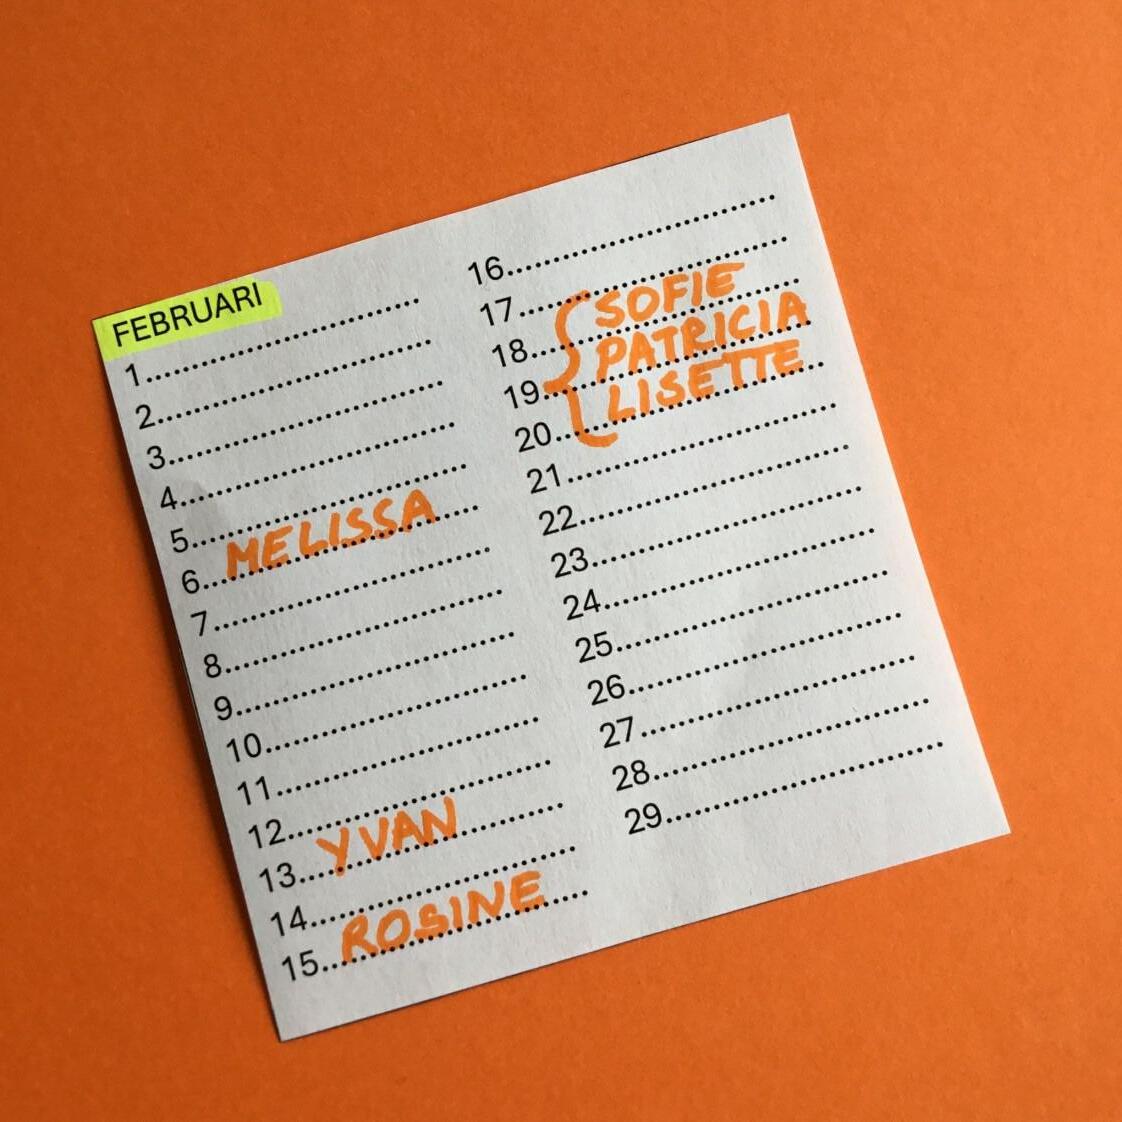 FEBRUARI
1..............................
2..............................
3..............................
4..............................
5..............................
6.. MELISSA
7..............................
8..............................
9..............................
10.............................
11.............................
12.............................
13... YVAN
14.............................
15.. ROSINE
16.............................
17.............................
18... SOFIE
19.. { PATRICIA
20... LISETTE
21.............................
22.............................
23.............................
24.............................
25.............................
26.............................
27.............................
28.............................
29.............................